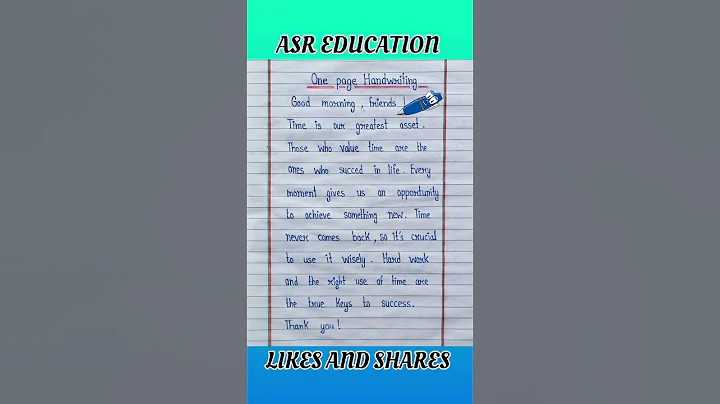 ASR EDUCATION
One page Handwriting
Good morning, friends !
Time is our greatest asset.
Those who value time are the
ones who succed in life. Every
moment gives us an opportunity
to achieve something new. Time
never comes back, so it's crucial
to use it wisely. Hard work
and the right use of time are
the true keys to success.
Thank you!
LIKES AND SHARES